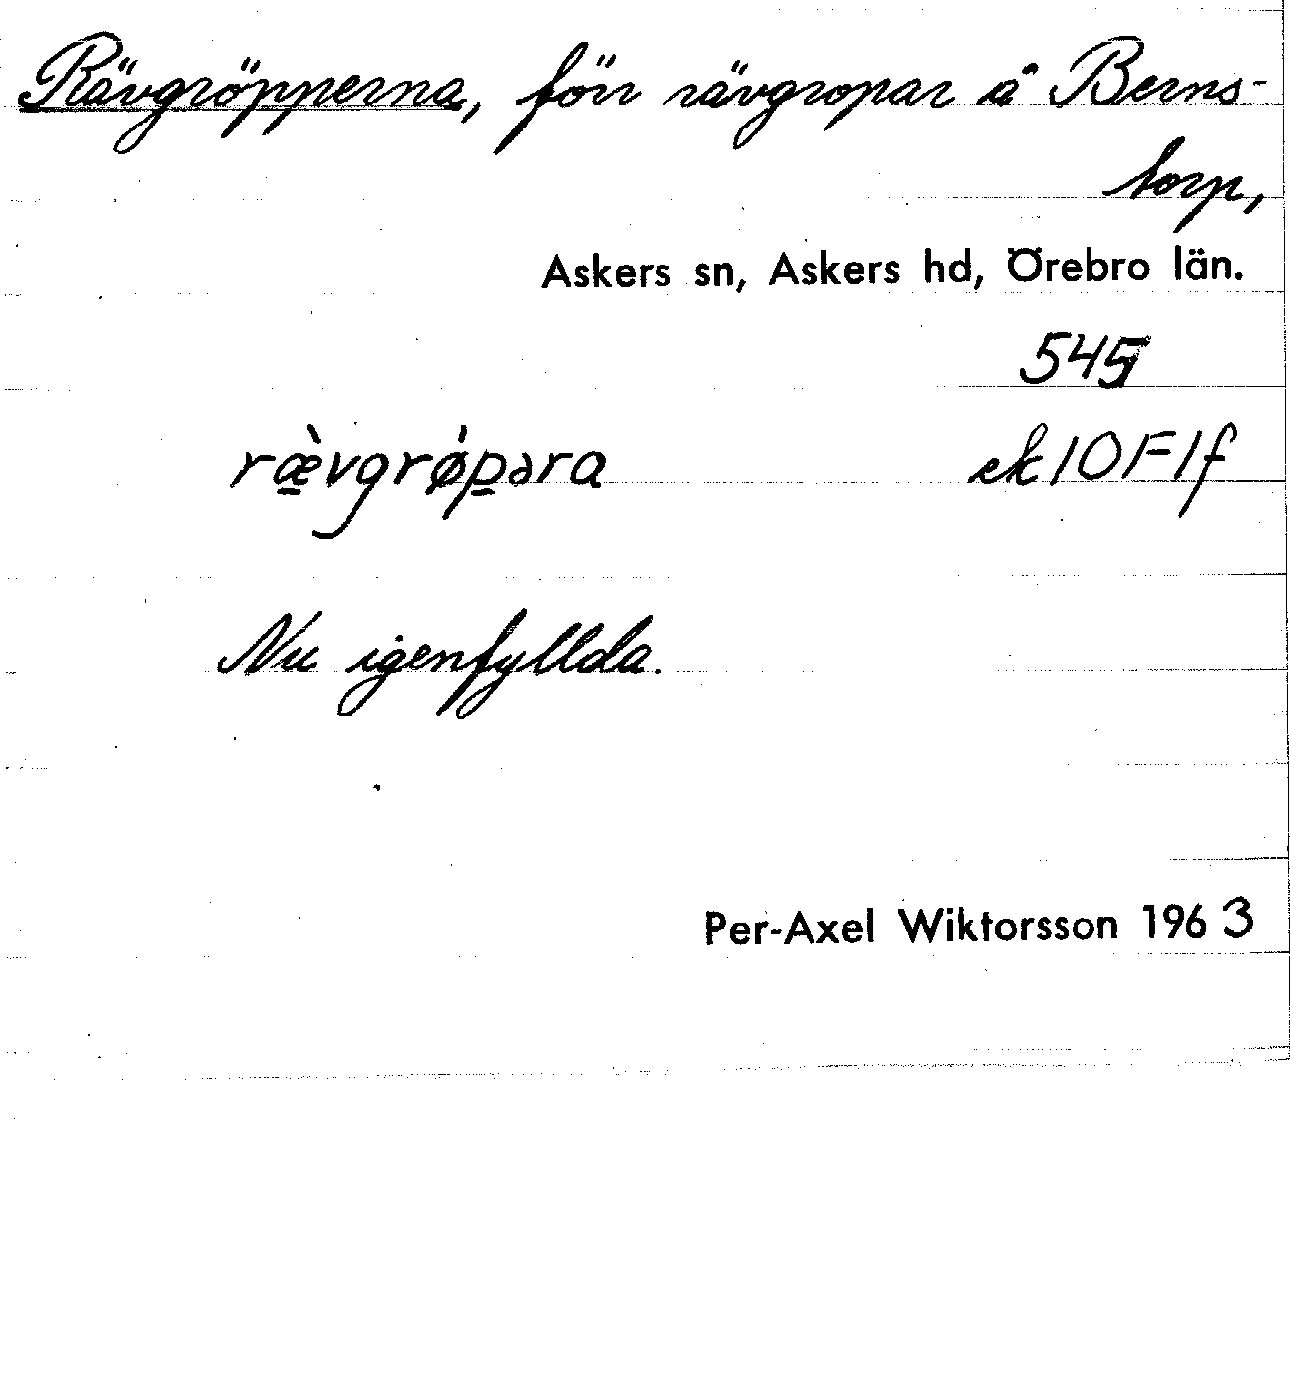 Rävgröpperna, förr rävgropar å Berns-
torp,
Askers sn, Askers hd, Örebro län.
545
ræ̀vgrǿpəra ek 10F1f
Nu igenfyllda.
Per-Axel Wiktorsson 1963